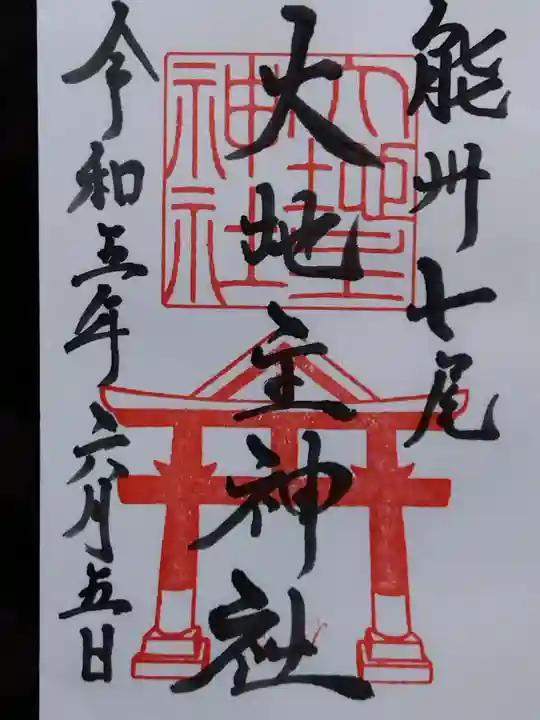 能州七尾
大地主神社
大地主
神社
令和五年六月五日